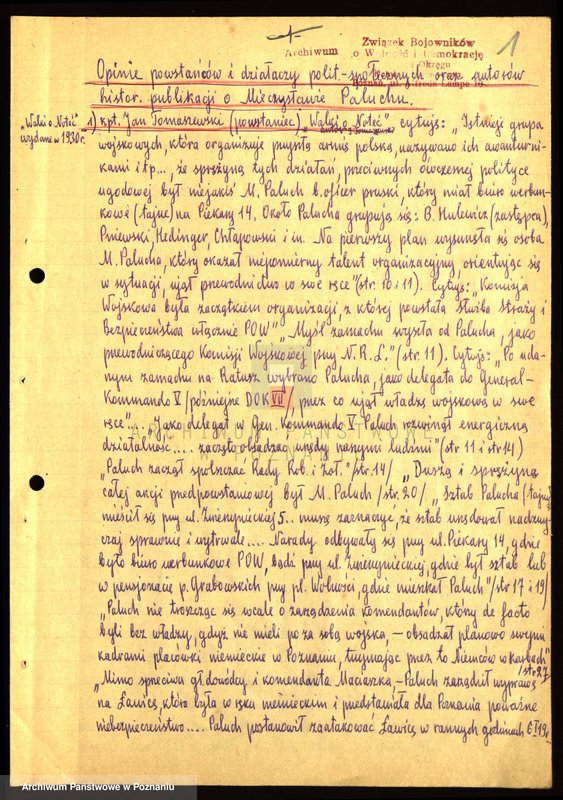 1
Związek Bojowników
Archiwum o Wolność i Demokrację
Okręgu
Opinie powstańców i działaczy polit.-społecznych oraz autorów
histor. publikacji o Mieczysławie Paluchu.
"Walki o Noteć"
wydane w 1930 r.
1) kpt. Jan Tomaszewski (powstaniec) "Walki o Noteć" cytuję: "Istnieje grupa
wojskowych, która organizuje przyszłą armię polską, nazywano ich awanturni-
kami itp..., że sprężyną tych działań, przeciwnych ówczesnej polityce
ugodowej był niejakiś M. Paluch b. oficer pruski, który miał biuro werbun-
kowe (tajne) na Piekary 14. Około Palucha grupują się: B. Hulewicz (zastępca),
Pniewski, Hedinger, Chłapowski i in. Na pierwszy plan wysunęła się osoba
M. Palucha, który okazał niepomierny talent organizacyjny, orientując się
w sytuacji, ujął przewodnictwo w swe ręce" (str. 10 i 11). Cytuję: "Komisja
Wojskowa była zaczątkiem organizacji z której powstała Służba Straży i
Bezpieczeństwa włącznie POW" "Myśl zamachu wyszła od Palucha, jako
przewodniczącego Komisji Wojskowej przy N.R.L." (str. 11). Cytuję: "Po uda-
nym zamachu na Ratusz wybrano Palucha, jako delegata do General-
Kommando V /późniejsze DOK VII/, przez co ujął władzę wojskową w swe
ręce"... "Jako delegat w Gen. Kommando V Paluch rozwinął energiczną
działalność.... zaczęto obsadzać urzędy naszymi ludźmi" (str 11 i str 14)
"Paluch zaczął spolszczać Rady Rob. i Żoł." /str. 14/ "Duszą i sprężyną
całej akcji przedpowstaniowej był M. Paluch /str. 20/ "Sztab Palucha (tajny)
mieścił się przy ul. Zwierzynieckiej 5.. muszę zaznaczyć, że sztab urzędował nadzwy-
czaj sprawnie i wytrwale.... Narady odbywały się przy ul. Piekary 14, gdzie
było biuro werbunkowe POW, bądź przy ul. Zwierzynieckiej, gdzie był sztab lub
w pensjonacie p. Grabowskich przy pl. Wolności, gdzie mieszkał Paluch" /str 17 i 19/
"Paluch nie troszcząc się wcale o zarządzenia komendantów, którzy de facto
byli bez władzy, gdyż nie mieli poza sobą wojska, – obsadzał planowo swymi
kadrami placówki niemieckie w Poznaniu, trzymając przez to Niemców w karbach"
/str 27
"Mimo sprzeciwu gł. dowódcy i komendanta Maciaszka – Paluch zarządził wyprawę
na Ławicę, która była w ręku niemieckim i przedstawiała dla Poznania poważne
niebezpieczeństwo.... Paluch postanowił zaatakować Ławicę w rannych godzinach 6 I 19 r.
ARCHIWUM PAŃSTWOWE
Archiwum Państwowe w Poznaniu